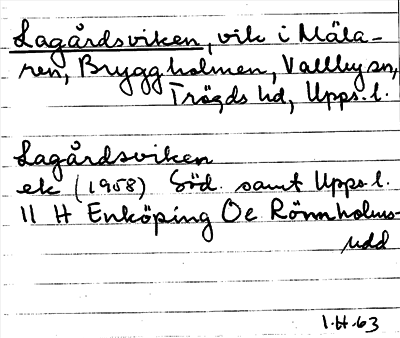 Lagårdsviken, vik i Mäla-
ren, Bryggholmen, Vallby sn,
Trögds hd, Upps. l.
Lagårdsviken
ek (1958) Söd. samt Upps. l.
11 H Enköping Oe Rönnholms-
udd
1.H.63